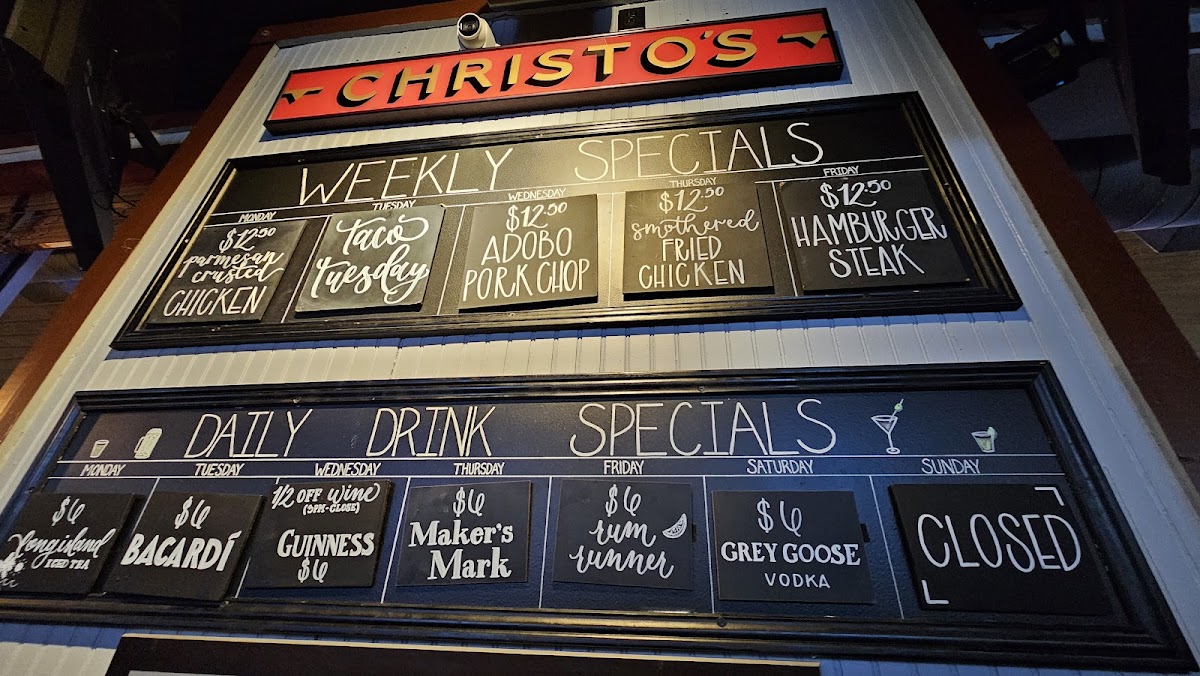 CHRISTO'S
WEEKLY SPECIALS
MONDAY
$12.50
parmesan
crusted
CHICKEN
TUESDAY
Taco
Tuesday
WEDNESDAY
$12.50
ADOBO
PORK CHOP
THURSDAY
$12.50
smothered
FRIED
CHICKEN
FRIDAY
$12.50
HAMBURGER
STEAK
DAILY DRINK SPECIALS
MONDAY
$6
long island
ICED TEA
TUESDAY
$6
BACARDÍ
WEDNESDAY
1/2 OFF wine
(5PM-CLOSE)
GUINNESS
$6
THURSDAY
$6
Maker's
Mark
FRIDAY
$6
rum
runner
SATURDAY
$6
GREY GOOSE
VODKA
SUNDAY
CLOSED